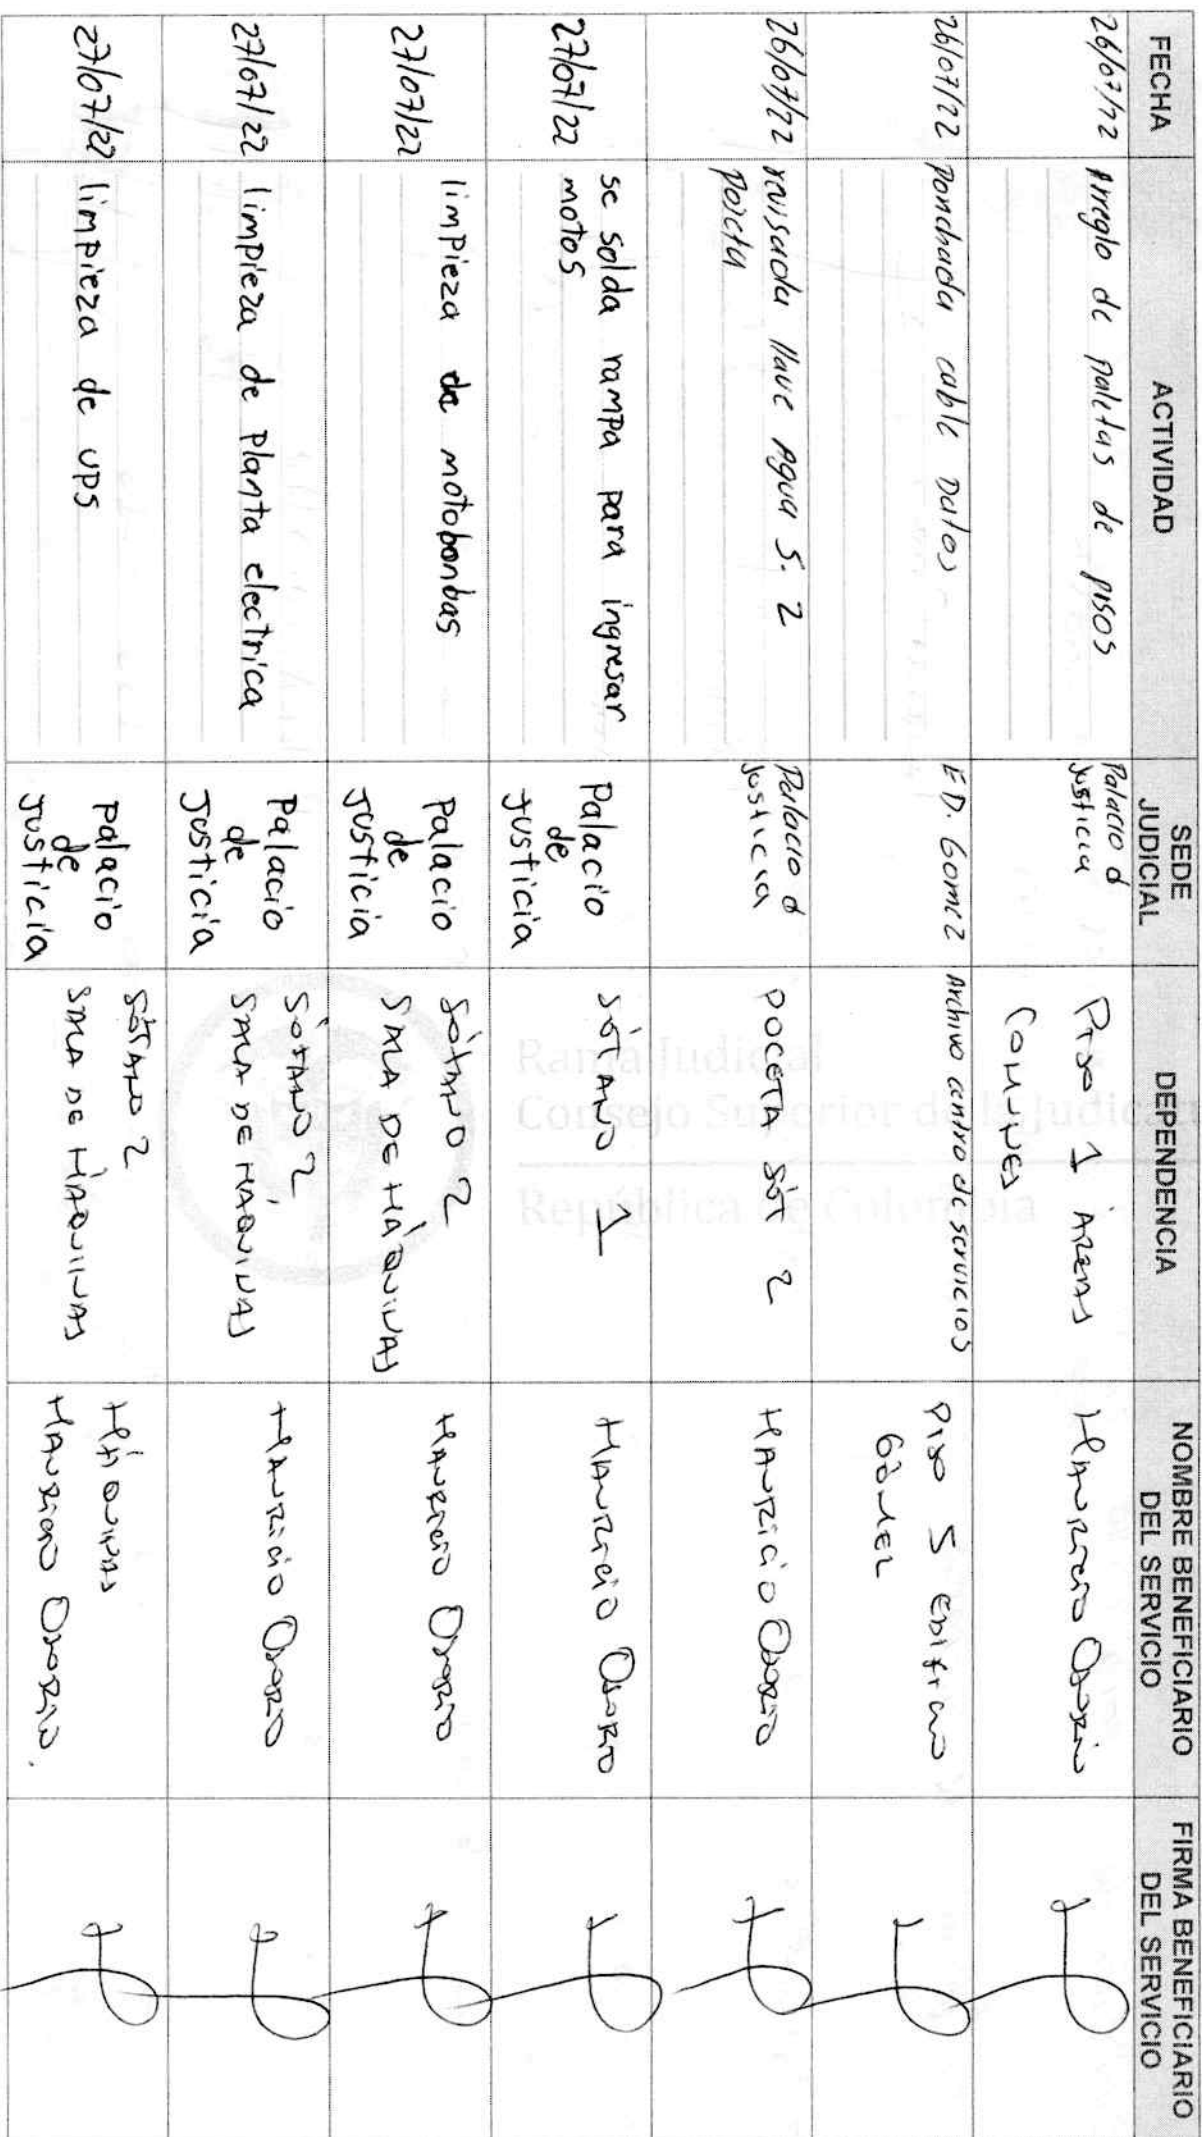 FECHA
ACTIVIDAD
SEDE
JUDICIAL
DEPENDENCIA
NOMBRE BENEFICIARIO
DEL SERVICIO
FIRMA BENEFICIARIO
DEL SERVICIO
26/07/22
Arreglo de paletas de pisos
Palacio d
Justicia
Piso 1 Áreas
Comunes
Mauricio Osorio
26/07/22
Ponchada cable Datos
ED. Gomez
Archivo centro de servicios
Piso 5 Edificio
Gómez
26/07/22
revisada llave Agua S. 2
Palacio d
Justicia
POCETA SÓT 2
Mauricio Osorio
27/07/22
se solda rampa para ingresar
motos
Palacio
de
Justicia
SÓTANO 1
Mauricio Osorio
27/07/22
limpieza de motobombas
Palacio
de
Justicia
SÓTANO 2
SALA DE MÁQUINAS
Mauricio Osorio
27/07/22
limpieza de planta electrica
Palacio
de
Justicia
SÓTANO 2
SALA DE MÁQUINAS
Mauricio Osorio
27/07/22
limpieza de UPS
Palacio
de
Justicia
SÓTANO 2
SALA DE MÁQUINAS
MÁQUINAS
Mauricio Osorio.
Rama Judicial
Consejo Superior de la Judicatu
República de Colombia